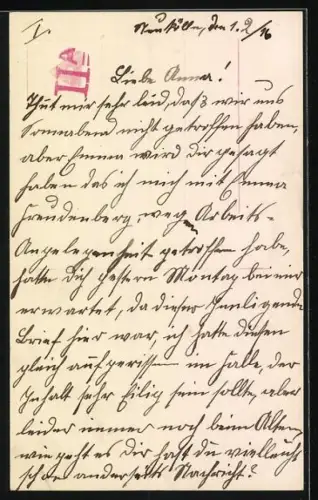 I.
Neukölln, den 1.2/16
IIA
Liebe Anna!
Thut mir sehr leid, daß wir uns
Sonnabend nicht getroffen haben,
aber Emma wird dir gesagt
haben das ich mich mit Emma
Freudenberg, wegen Arbeits-
Angelegenheit getroffen habe,
hatte Dich gestern Montag bei mir
erwartet, da dieser
Brief hier war, ich hatte diesen
gleich aufgerissen im Falle, der
Inhalt sehr Eilig sein sollte, aber
leider immer noch beim Alten,
wie geht es dir hast du vielleicht
schon anderseits Nachricht?